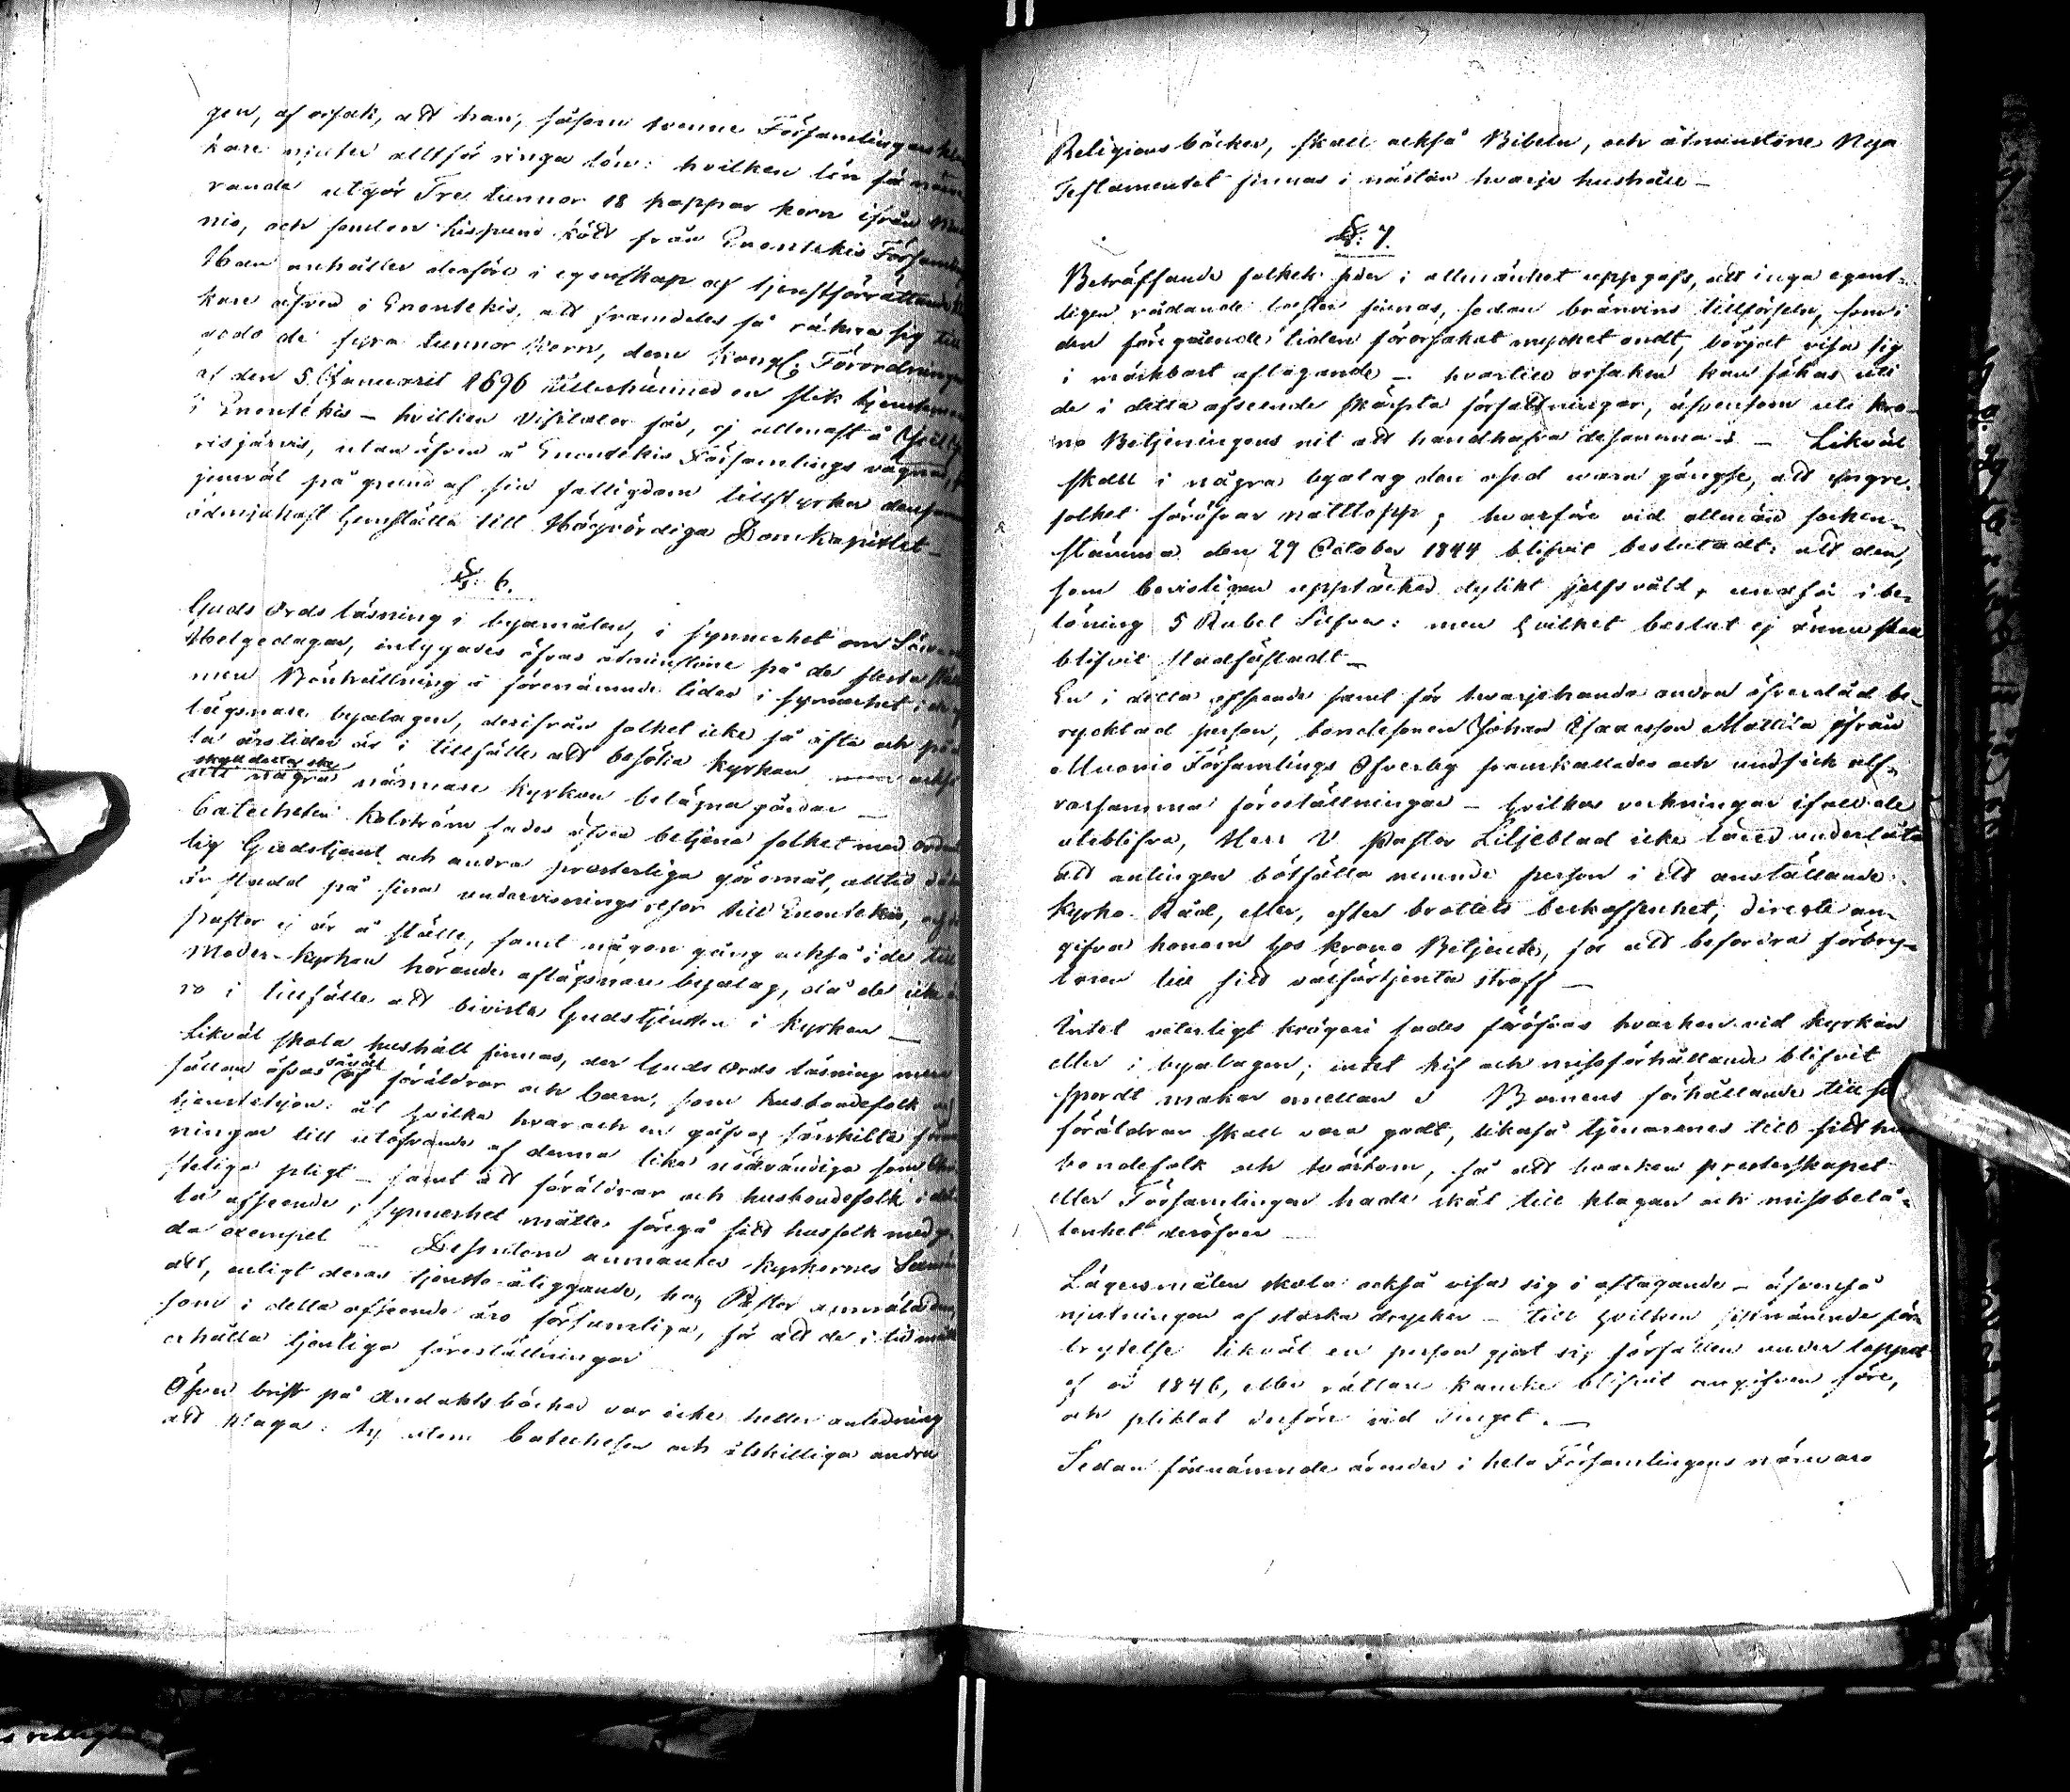 gen, af orsak, att han, såsom tvenne Församlingars kloc
kare njuter alltför ringa lön: hvilken lön för närva
rande utgör Tre tunnor 18 kappar korn ifrån Muo
nio, och femton Lispund kött från Enontekis Församling
Han anhåller derföre i egenskap af tjenstförrättande Kloc
kare äfven i Enontekis, att framdeles få räkna sig till
godo de fyra tunnor Korn, dem Kongl. Förordningen
af den 5 Januarii 1696 tillerkänner en slik tjensteman
i Enontekis – hvilken Visitator får, ej allenast å
risjärvis, utan äfven å Enontekis Församlings vägnar,
jemväl på grund af sin fattigdom tillstyrka densamma
ödmjukast hemställa till Högvördiga Domkapitlet –
§: 6.
Guds Ords läsning i byamålen, i synnerhet om Sön- och
Helgedagar, intygades öfvas åtminstone på de flesta
men Bönhållning å förenämnde tider i synnerhet i de af
lägsnare byalagen, derifrån folket icke så ofta och på
la årstider är i tillfälle att besöka Kyrkan men också
skall detta ske
uti några närmare Kyrkan belägna gårdar –
Catecheten Kolström sades äfven betjena folket med ordent
lig Gudstjenst och andra presterliga göromål, alltid då
är stadd på sina undervisningsresor till Enontekis, och
Pastor ej är å stället, samt någon gång också i de till
Moder-kyrkan hörande aflägsnare byalag, då de icke ä
ro i tillfälle att bivista Gudstjensten i Kyrkan –
Likväl skola hushåll finnas, der Guds Ords läsning mera
såväl
sällan öfvas af föräldrar och barn, som husbondefolk och
tjenstehjon: åt hvilka hvar och en gåfvos särskilta förma
ningar till utöfvande af denna lika nödvändiga som Chri
steliga pligt – samt att föräldrar och husbondefolk i det
ta afseende i synnerhet måtte föregå sitt husfolk med go
da exempel – Dessutom anmantes kyrkornes Sexmän
att, enligt deras tjenste-åliggande, hos Pastor anmäla dem,
som i detta afseende äro försumliga, för att de i tid måtte
erhålla tjenliga föreställningar
Äfven brist på Andaktsböcker var icke heller anledning
att klaga: ty utom Catechesen och åtskilliga andra
Religionsböcker, skall också Bibeln, och åtminstone Nya
Testamentet finnas i nästan hvarje hushåll –
§: 7.
Beträffande folkets seder i allmänhet uppgafs, att inga egent-
ligen rådande laster finnas, sedan bränvins tillförseln, som i
den föregående tiden förorsakat mycket ondt, börjat visa sig
i märkbart aftagande – hvartill orsaken kan sökas uti
de i detta afseende skärpta författningar, äfvensom uti kro-
no Betjeningens nit att handhafva desamma – Likväl
skall i några byalag den osed vara gängse, att yngre
folket föröfvar nattlopp; hvarföre vid allmän socken-
stämma den 29 October 1844 blifvit beslutadt: att den,
som bevisligen upptäcker dylikt sjelfsvåld, undfår i be-
löning 5 Rubel Silfver: men hvilket beslut ej ännu skall
blifvit stadfästadt –
En i detta afseende samt för hvarjehanda andra öfverdåd be-
ryktad person, bondesonen Johan Isaksson Mattila ifrån
Muonio Församlings Öfverby framkallades och undfick alf-
varsamma föreställningar – hvilkas verkningar ifall de
uteblifva, Herr V. Pastor Liljeblad icke lärer underlåta
att antingen bötfälla nämnde person i ett anställande
Kyrko-Råd, eller, efter brottets beskaffenhet, directe an-
gifva honom hos krono Betjente, för att befordra förbry-
taren till sitt välförtjenta straff –
Intet veterligt krögeri sades föröfvas hvarken vid kyrkan
eller i byalagen; intet kif och missförhållande blifvit
spordt makar emellan. Barnens förhållande till si
föräldrar skall vara godt, likaså tjenarenes till sitt hus
bondefolk och tvärtom, så att hvarken presterskapet
eller Församlingen hade skäl till klagan och missbelå-
tenhet deröfver –
Lägersmålen skola också visa sig i aftagande – äfvenså
njutningen af starka drycker – till hvilken sistnämnde för-
brytelse likväl en person gjort sig förfallen under loppet
af år 1846, eller rättare kanske blifvit angifven före,
och pliktat derföre vid Tinget. –
Sedan förenämnde ärender i hela Församlingens närvaro